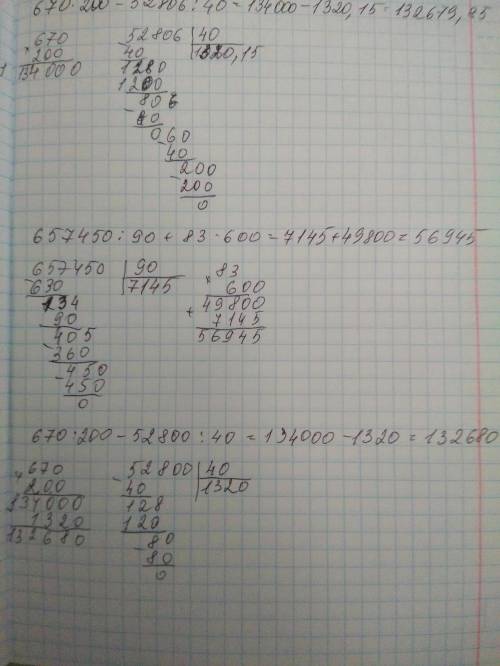 670·200 - 52806 : 40 = 134000 - 1320,15 = 132679,85
670 52806 | 40
×200 40 1320,15
134000 1280
1200
806
80
060
40
200
200
0
657450 : 90 + 83 · 600 = 7145 + 49800 = 56945
657450 | 90 × 83
630 7145 600
134 49800
90 + 7145
405 56945
360
450
450
0
670·200 - 52800 : 40 = 134000 - 1320 = 132680
×670 52800 | 40
200 40 1320
134000 128
1320 120
132680 80
80
0